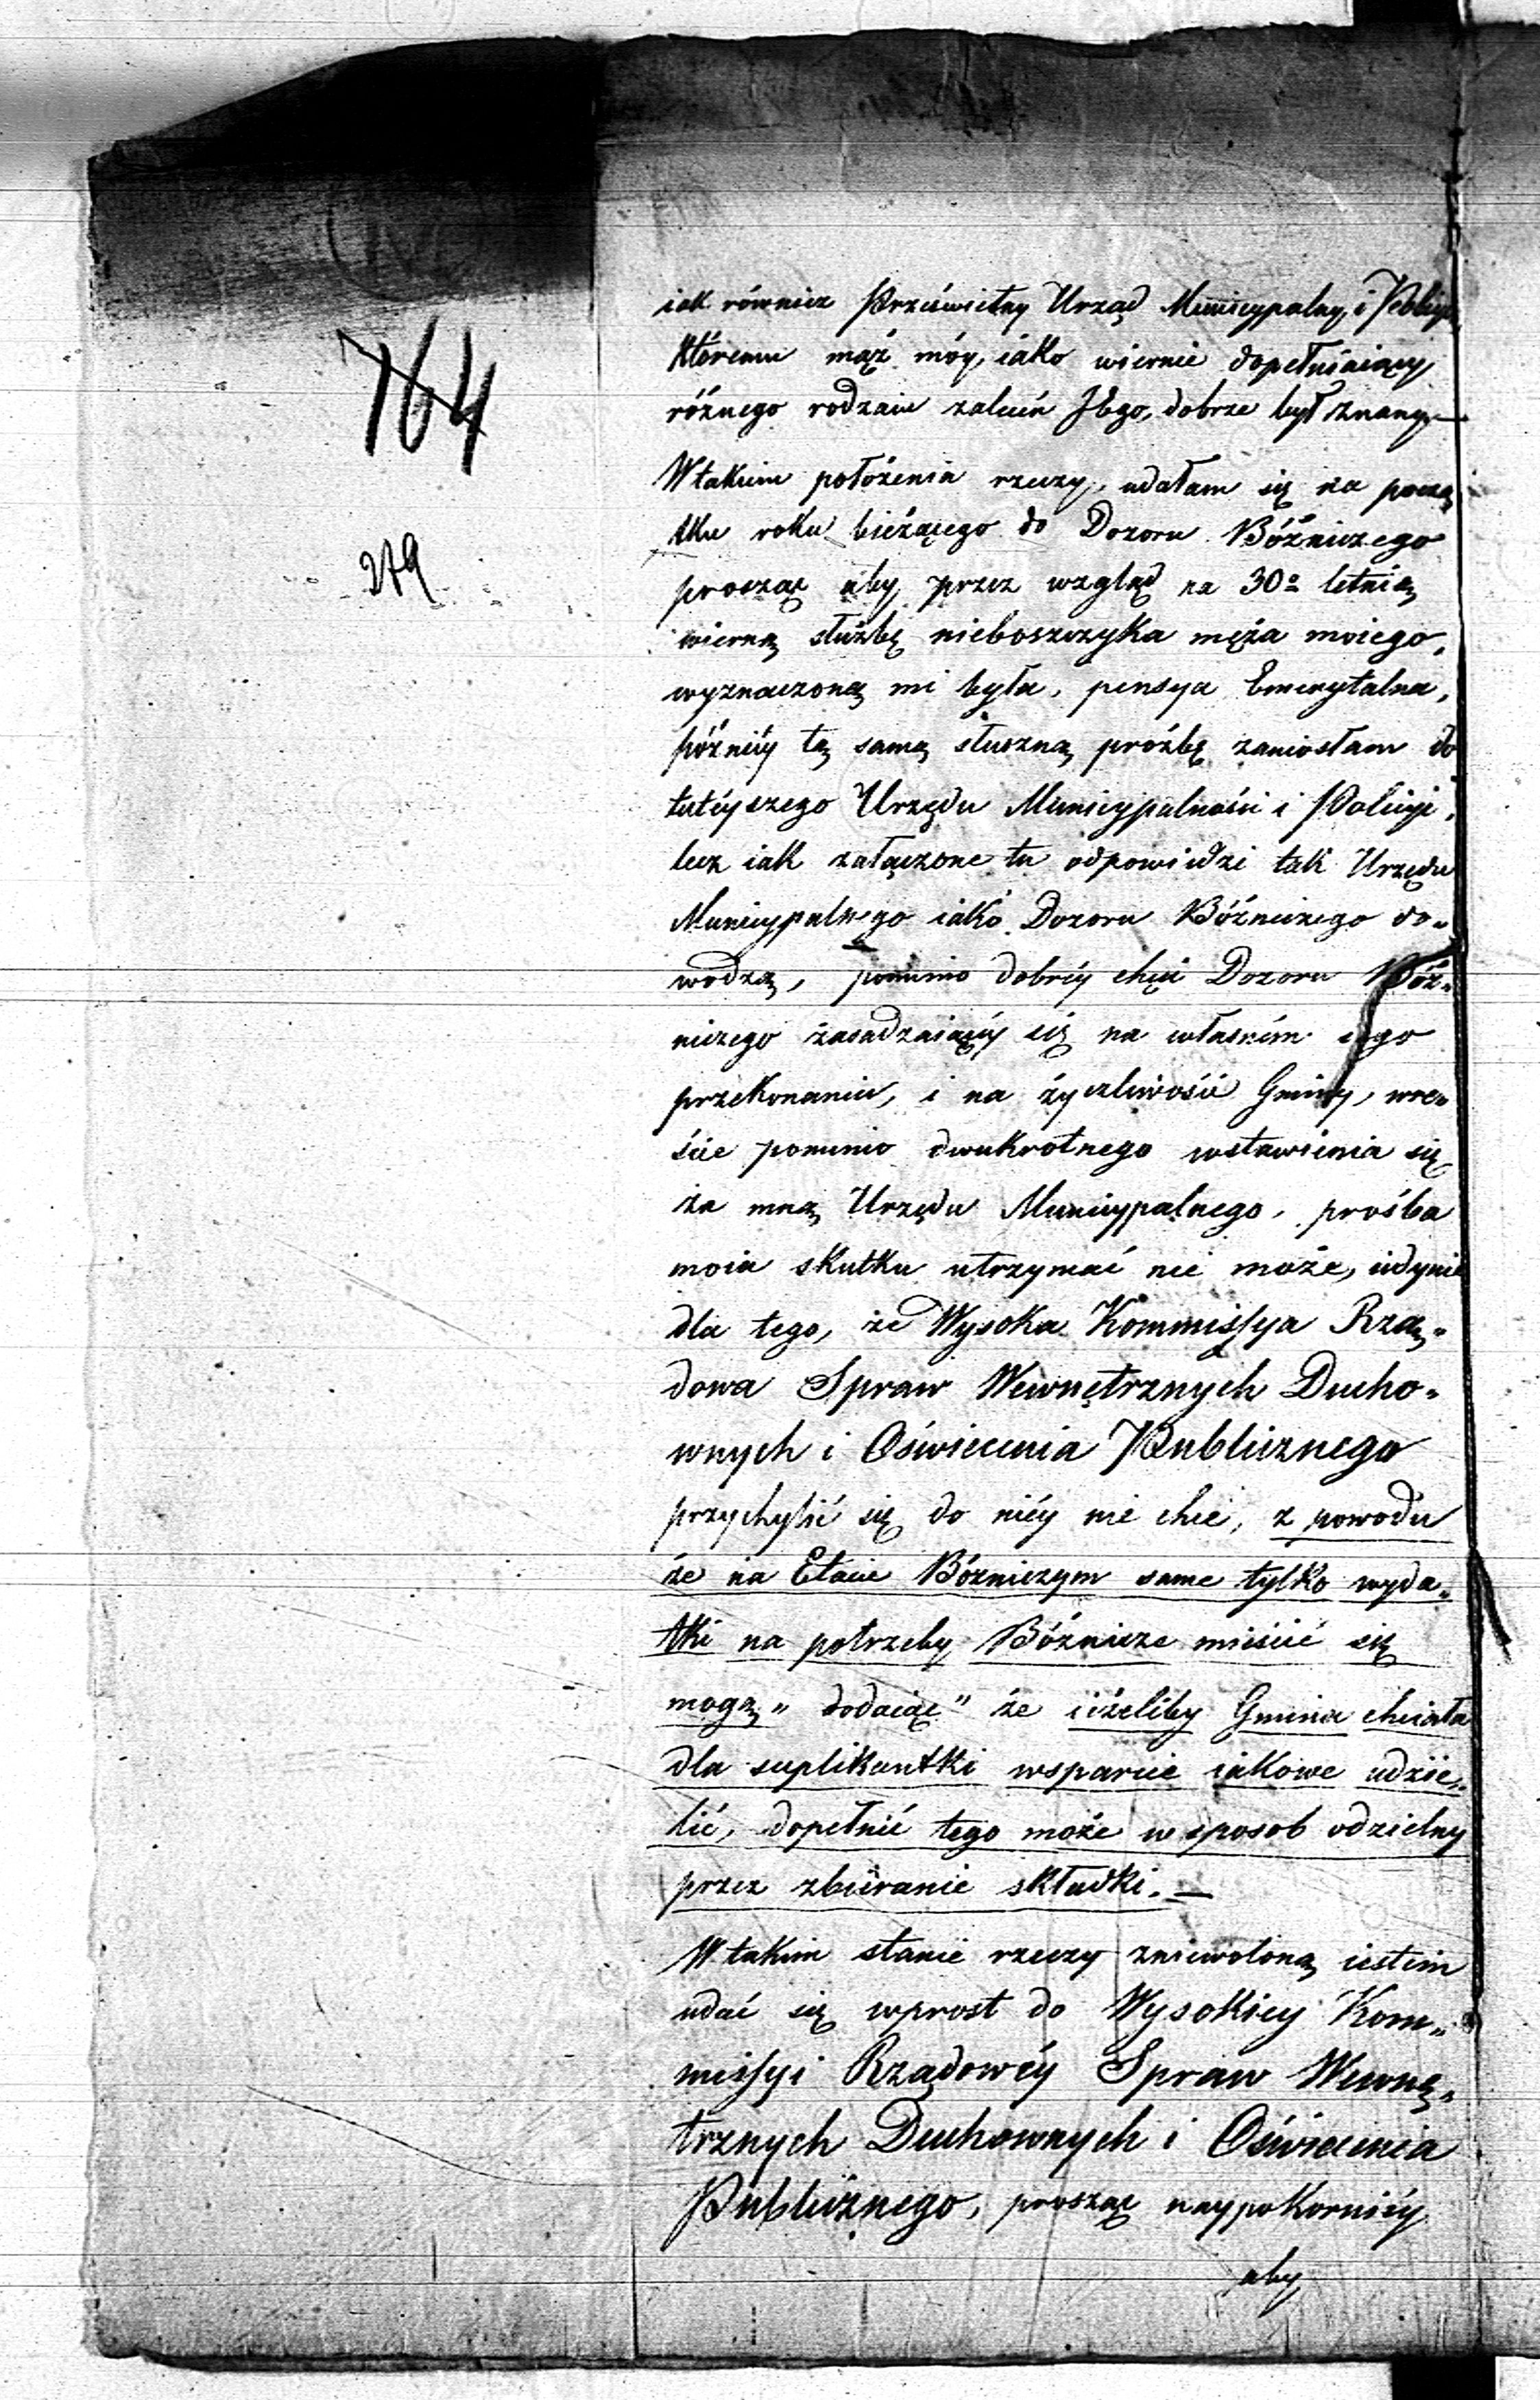 164
279
iak równiez Prześwietny Urząd Municypalny i Policyi
któremu mąż móy, iáko wiernie dopełniaiący
różnego rodzaiu zaleceń Jego, dobrze był znany —
W takiem położenia rzeczy, udałam się na począ
tku roku bieżącego do Dozoru Bóźniczego
prosząc aby przez wzgląd na 30º letnią
wierną służbę nieboszczyka męża moiego,
wyznaczoną mi była, pensya Emerytalna,
późniéy tą samą słuszną proźbę zaniosłam do
tutéyszego Urzędu Municypalności i Policyi,
lecz iak załączone tu odpowiedzi tak Urzędu
Municypalnego iáko Dozoru Bóźniczego do„
wodzą, pomimo dobréy chęci Dozoru Bóź„
niczego zasadzaiącéy się na własném iego
przekonaniu, i na życzliwości Gminy, wre„
ście pomimo dwukrotnego wstawienia się
za mną Urzędu Municypalnego, prośba
moia skutku utrzymać nie może, iedynie
dla tego, że Wysoka Kommissya Rzą„
dowa Spraw Wewnętrznych Ducho„
wnych i Oświecenia Publicznego
przychylić się do niéy nie chce, z powodu
że na Etacie Bózniczym same tylko wyda„
tki na potrzeby Bóźnicze mieścić się
mogą„ dodaiąc" że ieżeliby Gmina chciała
dla suplikantki wsparcie iakowe udzie„
lić, dopełnić tego może w sposob odzielny
przez zbieranie składki. —
W takim stanie rzeczy zniewoloną iestem
udać się wprost do Wysokiey Kom„
missyi Rządowéy Spraw Wewnę„
trznych Duchownych i Oświecenia
Publicznego, prosząc naypokorniéy
aby